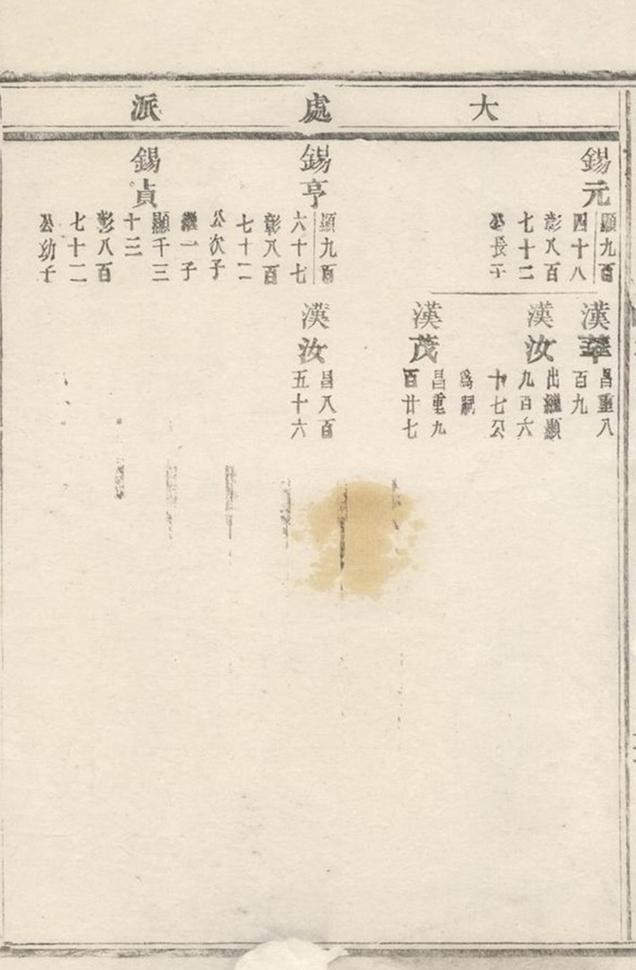 大處派
錫元
顯九百
四十八
彰八百
七十二
公長子
錫亨
顯九百
六十七
彰八百
七十二
公次子
繼一子
錫貞
顯千三
十三
彰八百
七十二
公幼子
漢華
昌重八
百九
漢汝
出繼顯
九百六
十七公
為嗣
漢茂
昌重九
百廿七
漢汝
昌八百
五十六